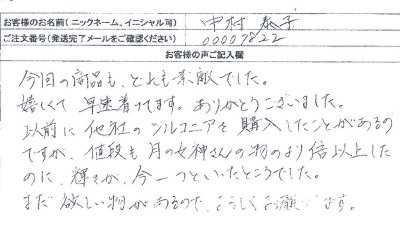 お客様のお名前(ニックネーム、イニシャル可) 中村 泰子
ご注文番号(発送完了メールをご確認ください) 00007822
お客様の声ご記入欄
今回の商品も、とても素敵でした。
嬉しくて早速着けてます。ありがとうございました。
以前に他社のジルコニアを購入したことがあるの
ですが、値段も月の女神さんの物のより倍以上した
のに、輝きが、今一つといったところでした。
まだ欲しい物があるので、よろしくお願います。